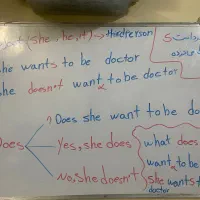 (she, he, it) → third person S
she wants to be doctor
she doesn't want to be doctor
? Does she want to be do
Does
Yes, she does
No, she doesn't
what does
want to be
she wants t
doctor